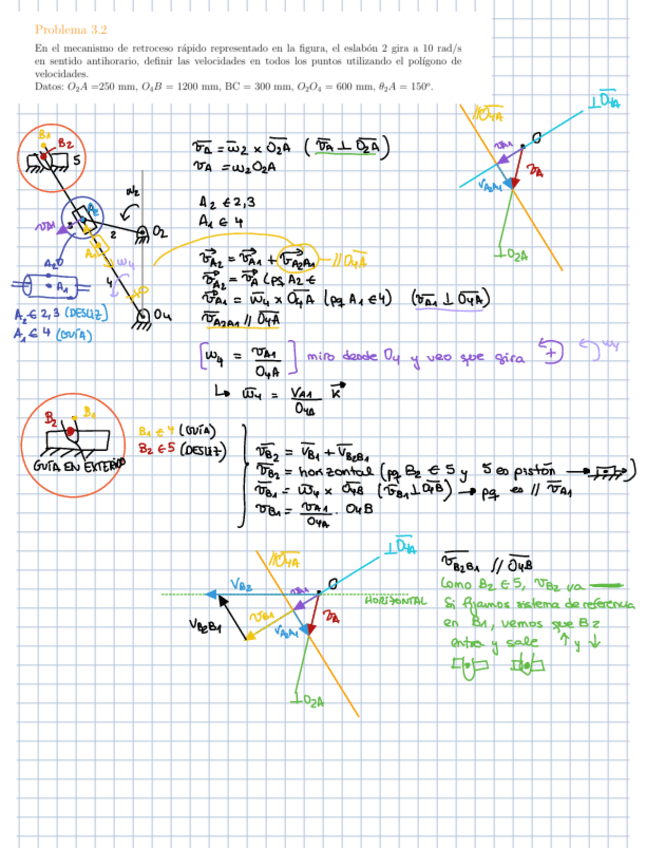 Problema 3.2
En el mecanismo de retroceso rápido representado en la figura, el eslabón 2 gira a 10 rad/s
en sentido antihorario, definir las velocidades en todos los puntos utilizando el polígono de
velocidades.
Datos: O₂A =250 mm, O₄B = 1200 mm, BC = 300 mm, O₂O₄ = 600 mm, θ₂A = 150º.
//O₄A
⊥O₄A
O
VA1
VA
VA2A1
⊥O2A
B1
B2
5
A2
VA1
2
A1
ω2
O2
ω4
4
O4
A2
A1
A2 ∈ 2,3 (DESLIZ)
A1 ∈ 4 (GUÍA)
VA = ω2 x O2A ( VA ⊥ O2A )
VA = ω2 O2A
A2 ∈ 2,3
A1 ∈ 4
VA2 = VA1 + VA2A1 → // O4A
VA2 = VA (pq A2 ∈
VA1 = ω4 x O4A (pq A1 ∈ 4) (VA1 ⊥ O4A)
VA2A1 // O4A
[ω4 = VA1 / O4A] miro desde O4 y veo que gira + ω4
↳ ω4 = VA1 / O4A K
B2
B1
GUÍA EN EXTERIOR
B1 ∈ 4 (GUÍA)
B2 ∈ 5 (DESLIZ)
VB2 = VB1 + VB2B1
VB2 = horizontal (pq B2 ∈ 5 y 5 es pistón → )
VB1 = ω4 x O4B (VB1 ⊥ O4B) → pq es // VA1
VB1 = VA1 / O4A · O4B
//O4A
⊥O4A
VB2
VA1
O
HORIZONTAL
VB1
VA
VB2B1
VA2A1
⊥O2A
VB2B1 // O4B
Como B2 ∈ 5, VB2 va —
Si fijamos sistema de referencia
en B1, vemos que B2
entra y sale ↑ y ↓